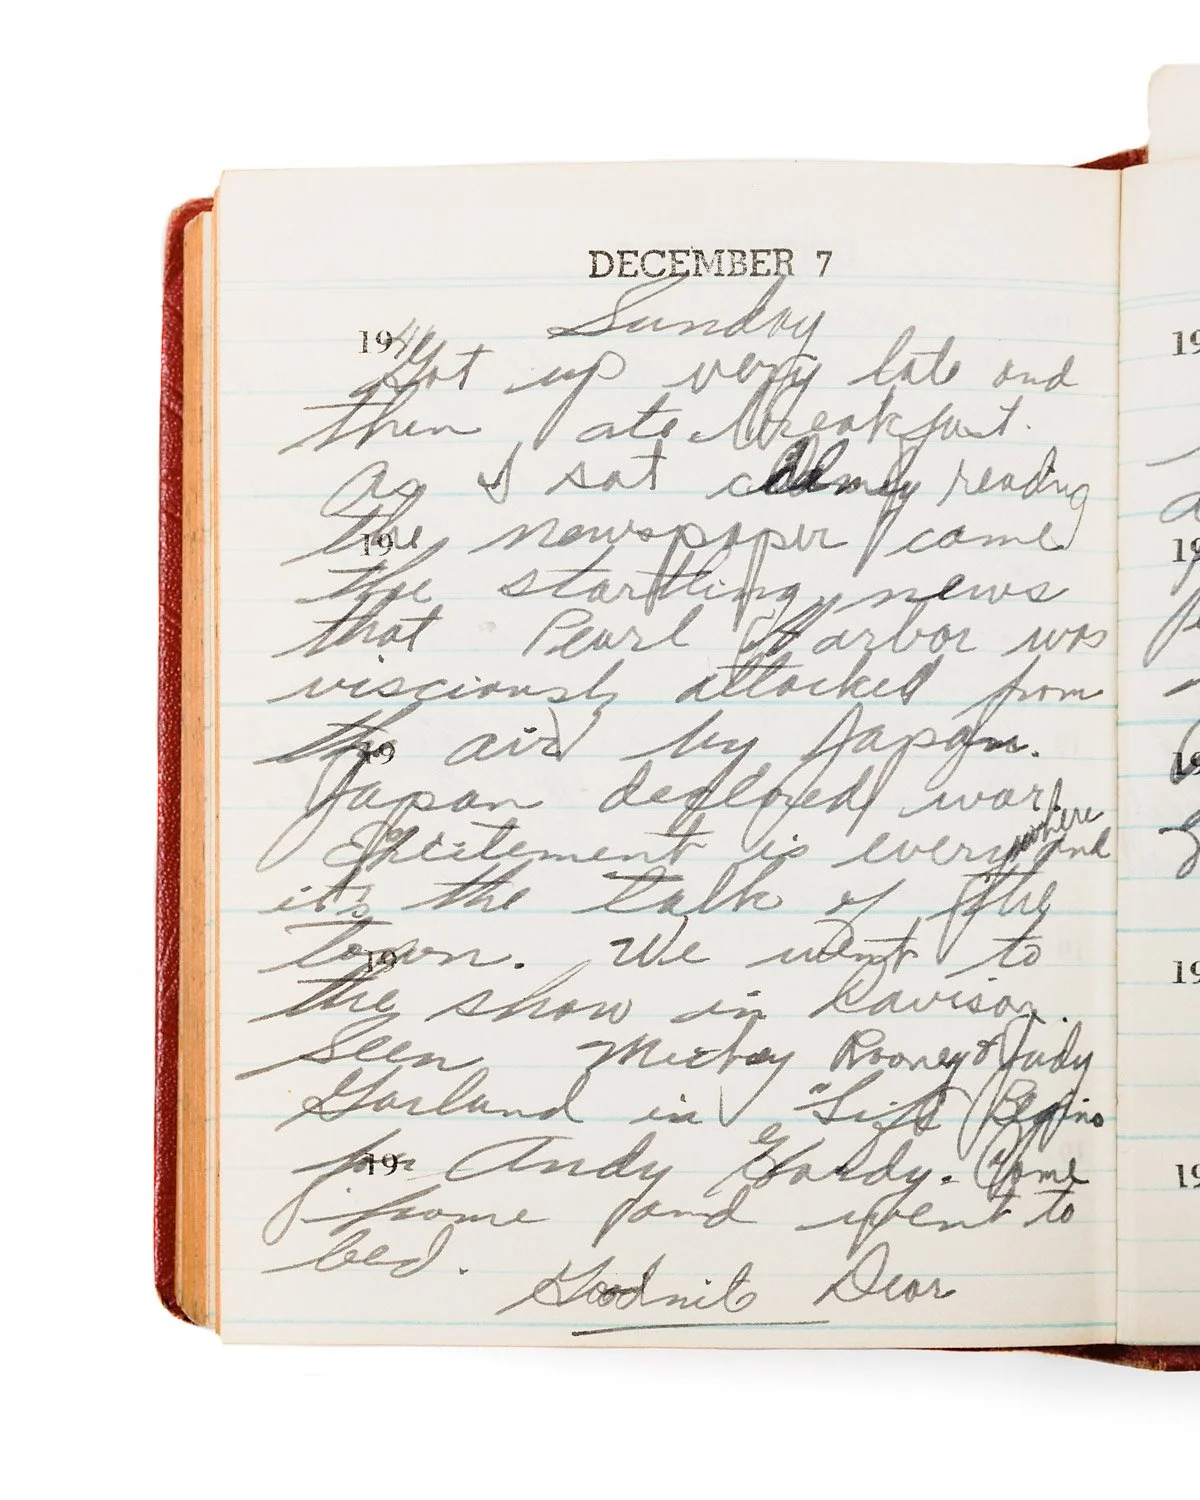 DECEMBER 7
Sunday
1941
Got up very late and
then ate breakfast.
As I sat calmly reading
the newspaper came
19
the startling news
that Pearl Harbor was
visciously attacked from
the air by Japan.
19
Japan declared war.
Excitement is everywhere and
it's the talk of the
town. We went to
19
the show in Davison.
Seen Mickey Rooney & Judy
Garland in "Life Begins
for Andy Hardy. Come
19
home and went to
bed.
Goodnite Dear
19
19
19
19
19